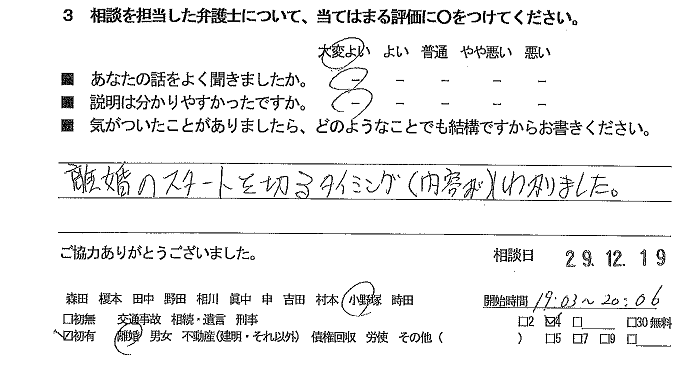 3 相談を担当した弁護士について、当てはまる評価に○をつけてください。
大変よい よい 普通 やや悪い 悪い
■ あなたの話をよく聞きましたか。 - - - - -
■ 説明は分かりやすかったですか。 - - - - -
■ 気がついたことがありましたら、どのようなことでも結構ですからお書きください。
離婚のスタートを切るタイミング(内容が)わかりました。
ご協力ありがとうございました。 相談日 29.12.19
森田 榎本 田中 野田 相川 眞中 申 吉田 村本 小野塚 時田 開始時間 19:03~20:06
□初無 交通事故 相続・遺言 刑事 □2 ☑4 □____ □30無料
☑初有 離婚 男女 不動産(建明・それ以外) 債権回収 労使 その他( ) □5 □7 □9 □____